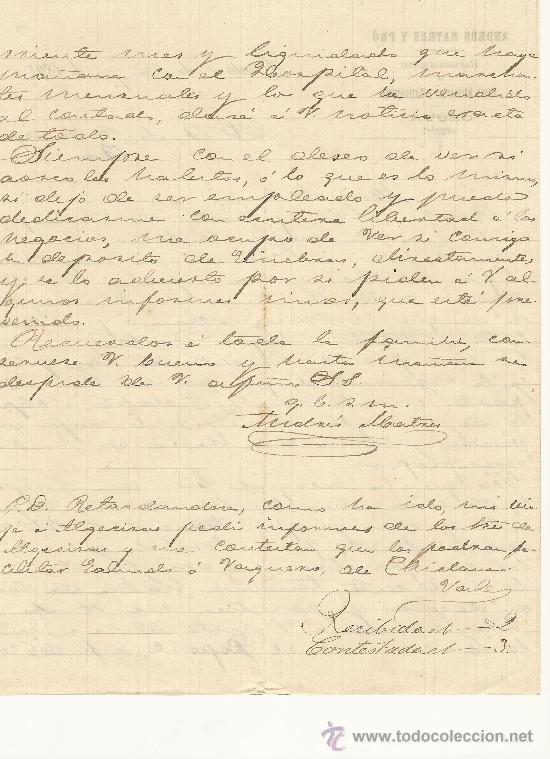 miente mes y liquidado que haya
mañana con el Hospital, marchan-
tes mensuales y lo que ha vendido
al contado, daré á V. noticia exacta
de todo.
Siempre con el deseo de ver si
los Mateitos, ó lo que es lo mismo,
si dejo de ser empleado y puedo
dedicarme con entera libertad á los
negocios, me ocupo de ver si consigo
depósito de Ginebras, directamente,
y se lo advierto por si piden á V. al-
gunos informes míos, que esté pre-
venido.
Recuerdos á toda la familia, con-
servese V. bueno y hasta mañana se
despide de V. afmo. S.S.
q. b. s. m.
Andrés Matres
P.D. Retardandose, como ha ido, mi via-
je á Algeciras pedi informes de los de
Algeciras y me contestan que los podrian fa-
cilitar ó Vaquero, de Chiclana.
Vale
Recibida el - 2
Contestada el - 3.
ANDRES MATRES Y PRÓ
www.todocoleccion.net